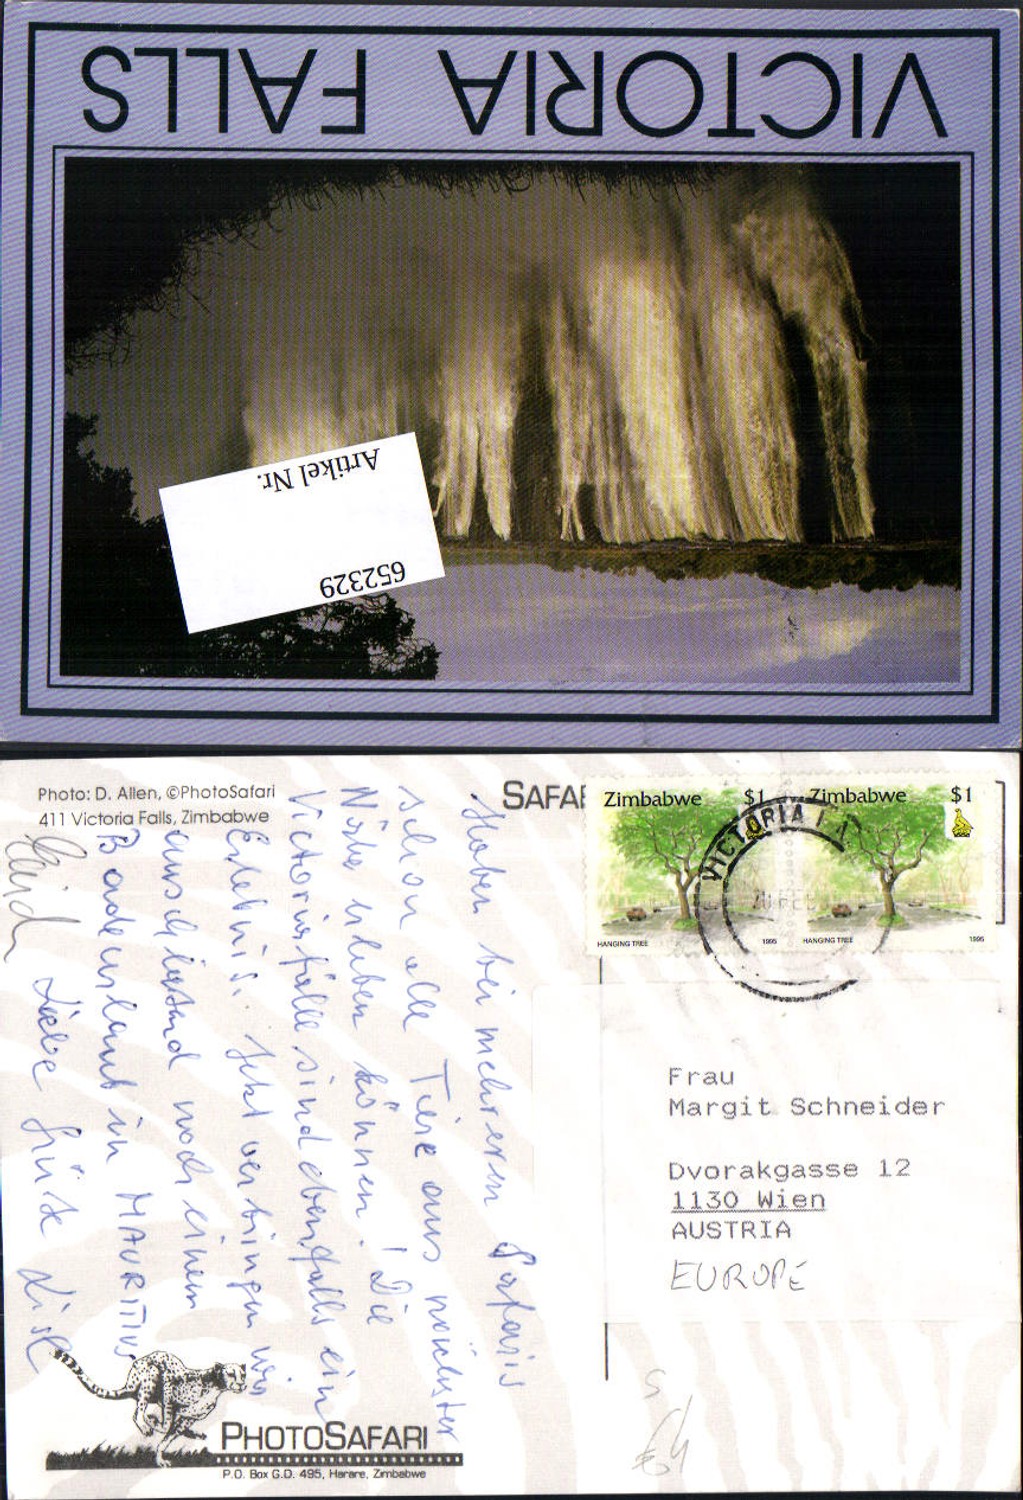 VICTORIA FALLS
Artikel Nr.
652329
Photo: D. Allen, ©PhotoSafari
411 Victoria Falls, Zimbabwe
SAFA
Zimbabwe $1
HANGING TREE 1995
Zimbabwe $1
HANGING TREE 1995
VICTORIA FA
Haben bei mehreren Safaris
schon alle Tiere aus nächster
Nähe erleben können! Die
Victoriafälle sind ebenfalls ein
Erlebnis. Jetzt verbringen wir
anschließend noch einen
Badeurlaub in MAURITIUS
Liebe Grüße
Frau
Margit Schneider
Dvorakgasse 12
1130 Wien
AUSTRIA
EUROPE
PHOTOSAFARI
P.O. Box G.D. 495, Harare, Zimbabwe